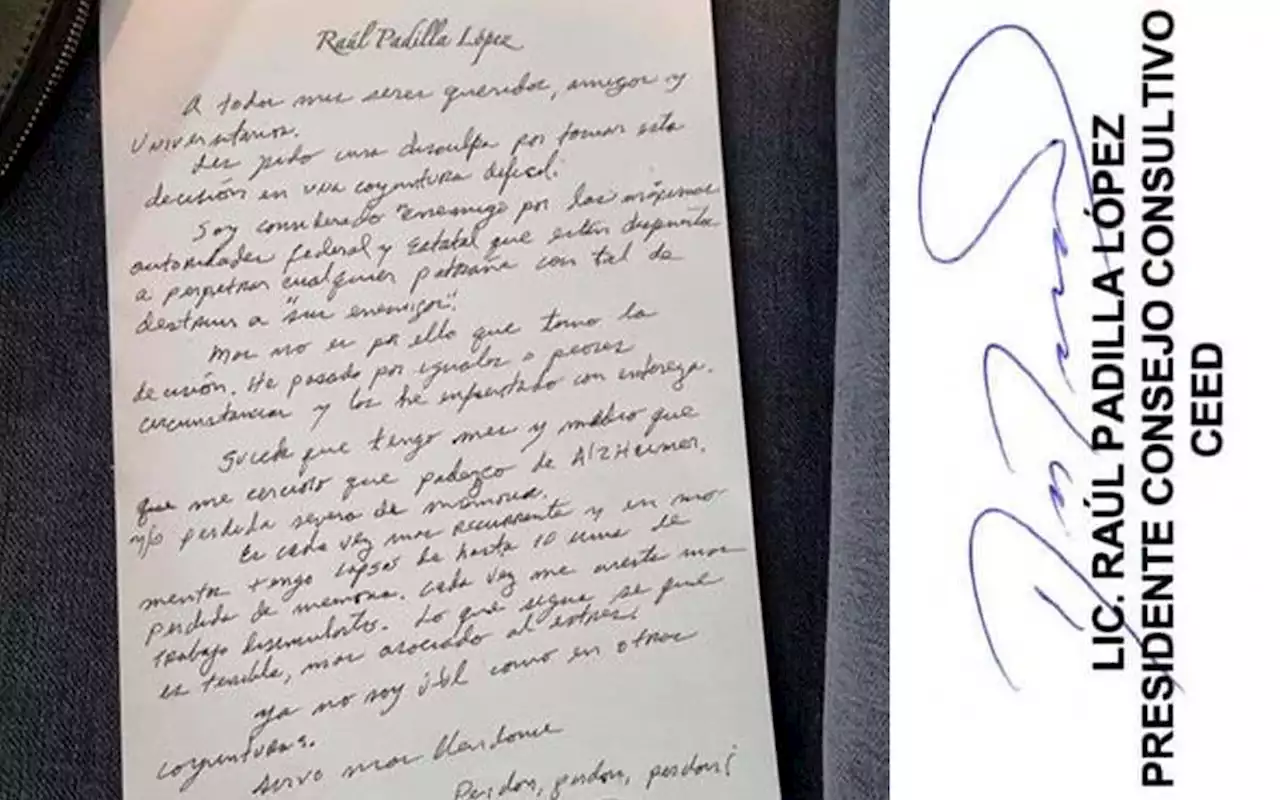 Raúl Padilla López
A todos mis seres queridos, amigos y
Universitarios.
Les pido una disculpa por tomar esta
decisión en una coyuntura difícil.
Soy considerado "enemigo por las máximas
autoridades federal y Estatal que están dispuestas
a perpetrar cualquier patraña con tal de
destruir a "sus enemigos".
Mas no es por ello que tomo la
decisión. He pasado por iguales o peores
circunstancias y las he enfrentado con entereza.
Sucede que tengo mes y medio que
que me cercioro que padezco de Alzheimer.
y/o perdida severa de memoria.
Es cada vez mas recurrente y en mo
mentos tengo lapsos de hasta 10 mins de
perdida de memoria. Cada vez me cuesta mas
trabajo disimularlo. Lo que sigue se que
es terrible, mas asociado al estres.
Ya no soy útil como en otras
coyunturas.
Sirvo mas
Perdon, perdon, perdon!
LIC. RAÚL PADILLA LÓPEZ
PRESIDENTE CONSEJO CONSULTIVO
CEED